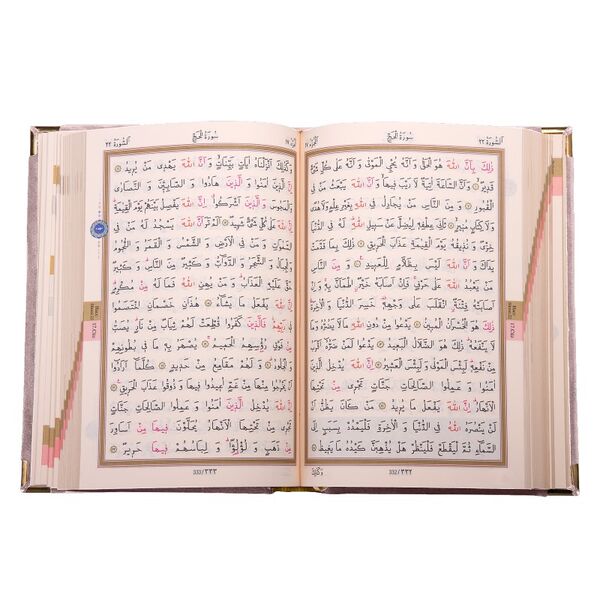 اَلسُّورَةُ ٢٢
سُورَةُ الْحَجِّ
اَلْجُزْءُ ١٧
ذٰلِكَ بِاَنَّ اللّٰهَ هُوَ الْحَقُّ وَاَنَّهُ يُحْيِ الْمَوْتٰى وَاَنَّهُ عَلٰى كُلِّ شَيْءٍ
قَدِيرٌ وَاَنَّ السَّاعَةَ اٰتِيَةٌ لَا رَيْبَ فِيهَا وَاَنَّ اللّٰهَ يَبْعَثُ مَنْ فِي
الْقُبُورِ وَمِنَ النَّاسِ مَنْ يُجَادِلُ فِي اللّٰهِ بِغَيْرِ عِلْمٍ وَلَا هُدًى
وَلَا كِتَابٍ مُنِيرٍ ثَانِيَ عِطْفِهِ لِيُضِلَّ عَنْ سَبِيلِ اللّٰهِ لَهُ فِي الدُّنْيَا
خِزْيٌ وَنُذِيقُهُ يَوْمَ الْقِيٰمَةِ عَذَابَ الْحَرِيقِ ذٰلِكَ بِمَا قَدَّمَتْ
يَدَاكَ وَاَنَّ اللّٰهَ لَيْسَ بِظَلَّامٍ لِلْعَبِيدِ وَمِنَ النَّاسِ
مَنْ يَعْبُدُ اللّٰهَ عَلٰى حَرْفٍ فَاِنْ اَصَابَهُ خَيْرٌ اطْمَاَنَّ بِهِ وَاِنْ
اَصَابَتْهُ فِتْنَةٌ انْقَلَبَ عَلٰى وَجْهِهِ خَسِرَ الدُّنْيَا وَالْاٰخِرَةَ
ذٰلِكَ هُوَ الْخُسْرَانُ الْمُبِينُ يَدْعُوا مِنْ دُونِ اللّٰهِ مَا لَا يَضُرُّهُ
وَمَا لَا يَنْفَعُهُ ذٰلِكَ هُوَ الضَّلَالُ الْبَعِيدُ يَدْعُوا لَمَنْ ضَرُّهُ اَقْرَبُ
مِنْ نَفْعِهِ لَبِئْسَ الْمَوْلٰى وَلَبِئْسَ الْعَشِيرُ اِنَّ اللّٰهَ يُدْخِلُ
الَّذِينَ اٰمَنُوا وَعَمِلُوا الصَّالِحَاتِ جَنَّاتٍ تَجْرِي مِنْ تَحْتِهَا
الْاَنْهَارُ اِنَّ اللّٰهَ يَفْعَلُ مَا يُرِيدُ مَنْ كَانَ يَظُنُّ اَنْ
لَنْ يَنْصُرَهُ اللّٰهُ فِي الدُّنْيَا وَالْاٰخِرَةِ فَلْيَمْدُدْ بِسَبَبٍ اِلَى
السَّمَاءِ ثُمَّ لْيَقْطَعْ فَلْيَنْظُرْ هَلْ يُذْهِبَنَّ كَيْدُهُ مَا يَغِيظُ
وَكَذٰلِكَ
332/٣٣٢
اَلسُّورَةُ ٢٢
سُورَةُ الْحَجِّ
وَكَذٰلِكَ اَنْزَلْنَاهُ اٰيَاتٍ بَيِّنَاتٍ وَاَنَّ اللّٰهَ يَهْدِي مَنْ يُرِيدُ
اِنَّ الَّذِينَ اٰمَنُوا وَالَّذِينَ هَادُوا وَالصَّابِئِينَ وَالنَّصَارٰى
وَالْمَجُوسَ وَالَّذِينَ اَشْرَكُوا اِنَّ اللّٰهَ يَفْصِلُ بَيْنَهُمْ يَوْمَ الْقِيٰمَةِ
اِنَّ اللّٰهَ عَلٰى كُلِّ شَيْءٍ شَهِيدٌ اَلَمْ تَرَ اَنَّ اللّٰهَ يَسْجُدُ لَهُ مَنْ فِي
السَّمٰوَاتِ وَمَنْ فِي الْاَرْضِ وَالشَّمْسُ وَالْقَمَرُ وَالنُّجُومُ
وَالْجِبَالُ وَالشَّجَرُ وَالدَّوَابُّ وَكَثِيرٌ مِنَ النَّاسِ وَكَثِيرٌ
حَقَّ عَلَيْهِ الْعَذَابُ وَمَنْ يُهِنِ اللّٰهُ فَمَا لَهُ مِنْ مُكْرِمٍ
اِنَّ اللّٰهَ يَفْعَلُ مَا يَشَاءُ هٰذَانِ خَصْمَانِ اخْتَصَمُوا
فِي رَبِّهِمْ فَالَّذِينَ كَفَرُوا قُطِّعَتْ لَهُمْ ثِيَابٌ مِنْ نَارٍ يُصَبُّ
مِنْ فَوْقِ رُؤُسِهِمُ الْحَمِيمُ يُصْهَرُ بِهِ مَا فِي بُطُونِهِمْ
وَالْجُلُودُ وَلَهُمْ مَقَامِعُ مِنْ حَدِيدٍ كُلَّمَا اَرَادُوا
اَنْ يَخْرُجُوا مِنْهَا مِنْ غَمٍّ اُعِيدُوا فِيهَا وَذُوقُوا عَذَابَ الْحَرِيقِ
اِنَّ اللّٰهَ يُدْخِلُ الَّذِينَ اٰمَنُوا وَعَمِلُوا الصَّالِحَاتِ جَنَّاتٍ
تَجْرِي مِنْ تَحْتِهَا الْاَنْهَارُ يُحَلَّوْنَ فِيهَا مِنْ اَسَاوِرَ
مِنْ ذَهَبٍ وَلُؤْلُؤًا وَلِبَاسُهُمْ فِيهَا حَرِيرٌ
333/٣٣٣
17.Cüz
17.Cüz